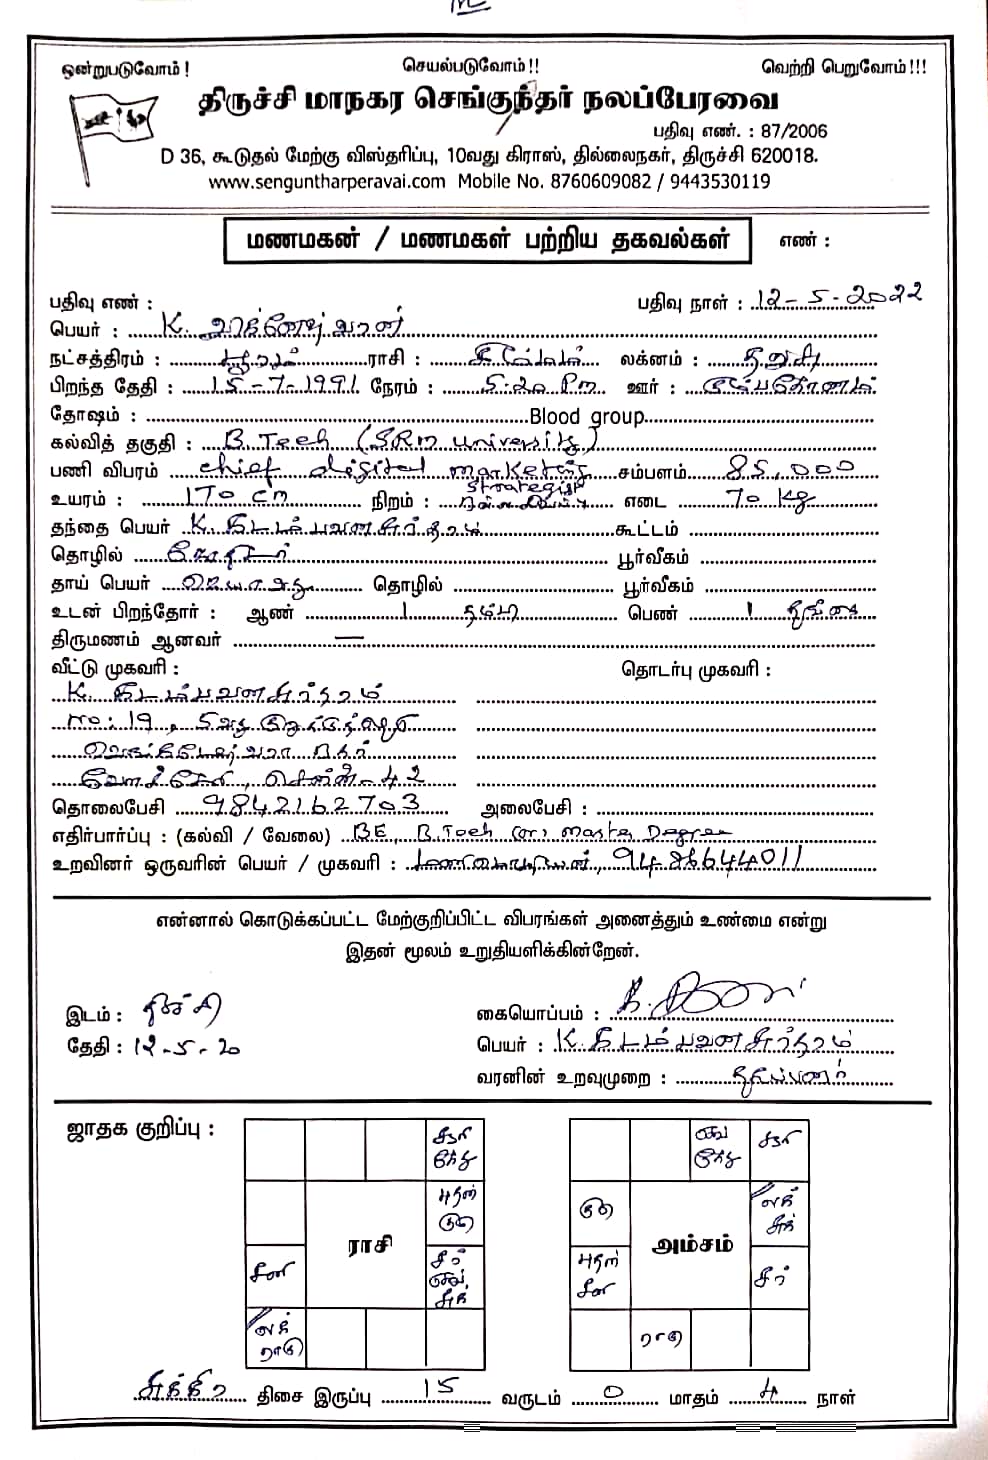 ஒன்றுபடுவோம் ! செயல்படுவோம் !! வெற்றி பெறுவோம் !!!
திருச்சி மாநகர செங்குந்தர் நலப்பேரவை
பதிவு எண். : 87/2006
D 36, கூடுதல் மேற்கு விஸ்தரிப்பு, 10வது கிராஸ், தில்லைநகர், திருச்சி 620018.
www.senguntharperavai.com Mobile No. 8760609082 / 9443530119
மணமகன் / மணமகள் பற்றிய தகவல்கள் எண் :
பதிவு எண் : பதிவு நாள் : 12-5-2022
பெயர் : K. விக்னேஷ்வரன்
நட்சத்திரம் : பூரம் ராசி : சிம்மம் லக்னம் : தனுசு
பிறந்த தேதி : 15-7-1991 நேரம் : 5.20 Pm ஊர் : கும்பகோணம்
தோஷம் : Blood group
கல்வித் தகுதி : B.Tech (SRM University)
பணி விபரம் chief digital marketing strategist சம்பளம் 85,000
உயரம் : 170 cm நிறம் : எடை 70 kg
தந்தை பெயர் K. கடம்பவனசுந்தரம் கூட்டம்
தொழில் பூர்வீகம்
தாய் பெயர் தொழில் பூர்வீகம்
உடன் பிறந்தோர் : ஆண் 1 பெண் 1 தங்கை
திருமணம் ஆனவர் —
வீட்டு முகவரி : தொடர்பு முகவரி :
K. கடம்பவனசுந்தரம்
No: 19, 5வது குறுக்குத்தெரு
வெங்கடேஸ்வரா நகர்
வேளச்சேரி, சென்னை-42
தொலைபேசி 9842162703 அலைபேசி :
எதிர்பார்ப்பு : (கல்வி / வேலை) BE, B.Tech (or) Master Degree
உறவினர் ஒருவரின் பெயர் / முகவரி : 9486644011
என்னால் கொடுக்கப்பட்ட மேற்குறிப்பிட்ட விபரங்கள் அனைத்தும் உண்மை என்று
இதன் மூலம் உறுதியளிக்கின்றேன்.
இடம் : திருச்சி கையொப்பம் :
தேதி : 12-5-20 பெயர் : K. கடம்பவனசுந்தரம்
வரனின் உறவுமுறை : தகப்பனார்
ஜாதக குறிப்பு :
சூரி
கேது
சந்
குரு
ராசி
சனி
செவ்
சுக்
லக்
ராகு
செவ்
கேது
சூரி
குரு
லக்
சுக்
அம்சம்
சனி
ராகு
சுக்கிர திசை இருப்பு 15 வருடம் 0 மாதம் 4 நாள்